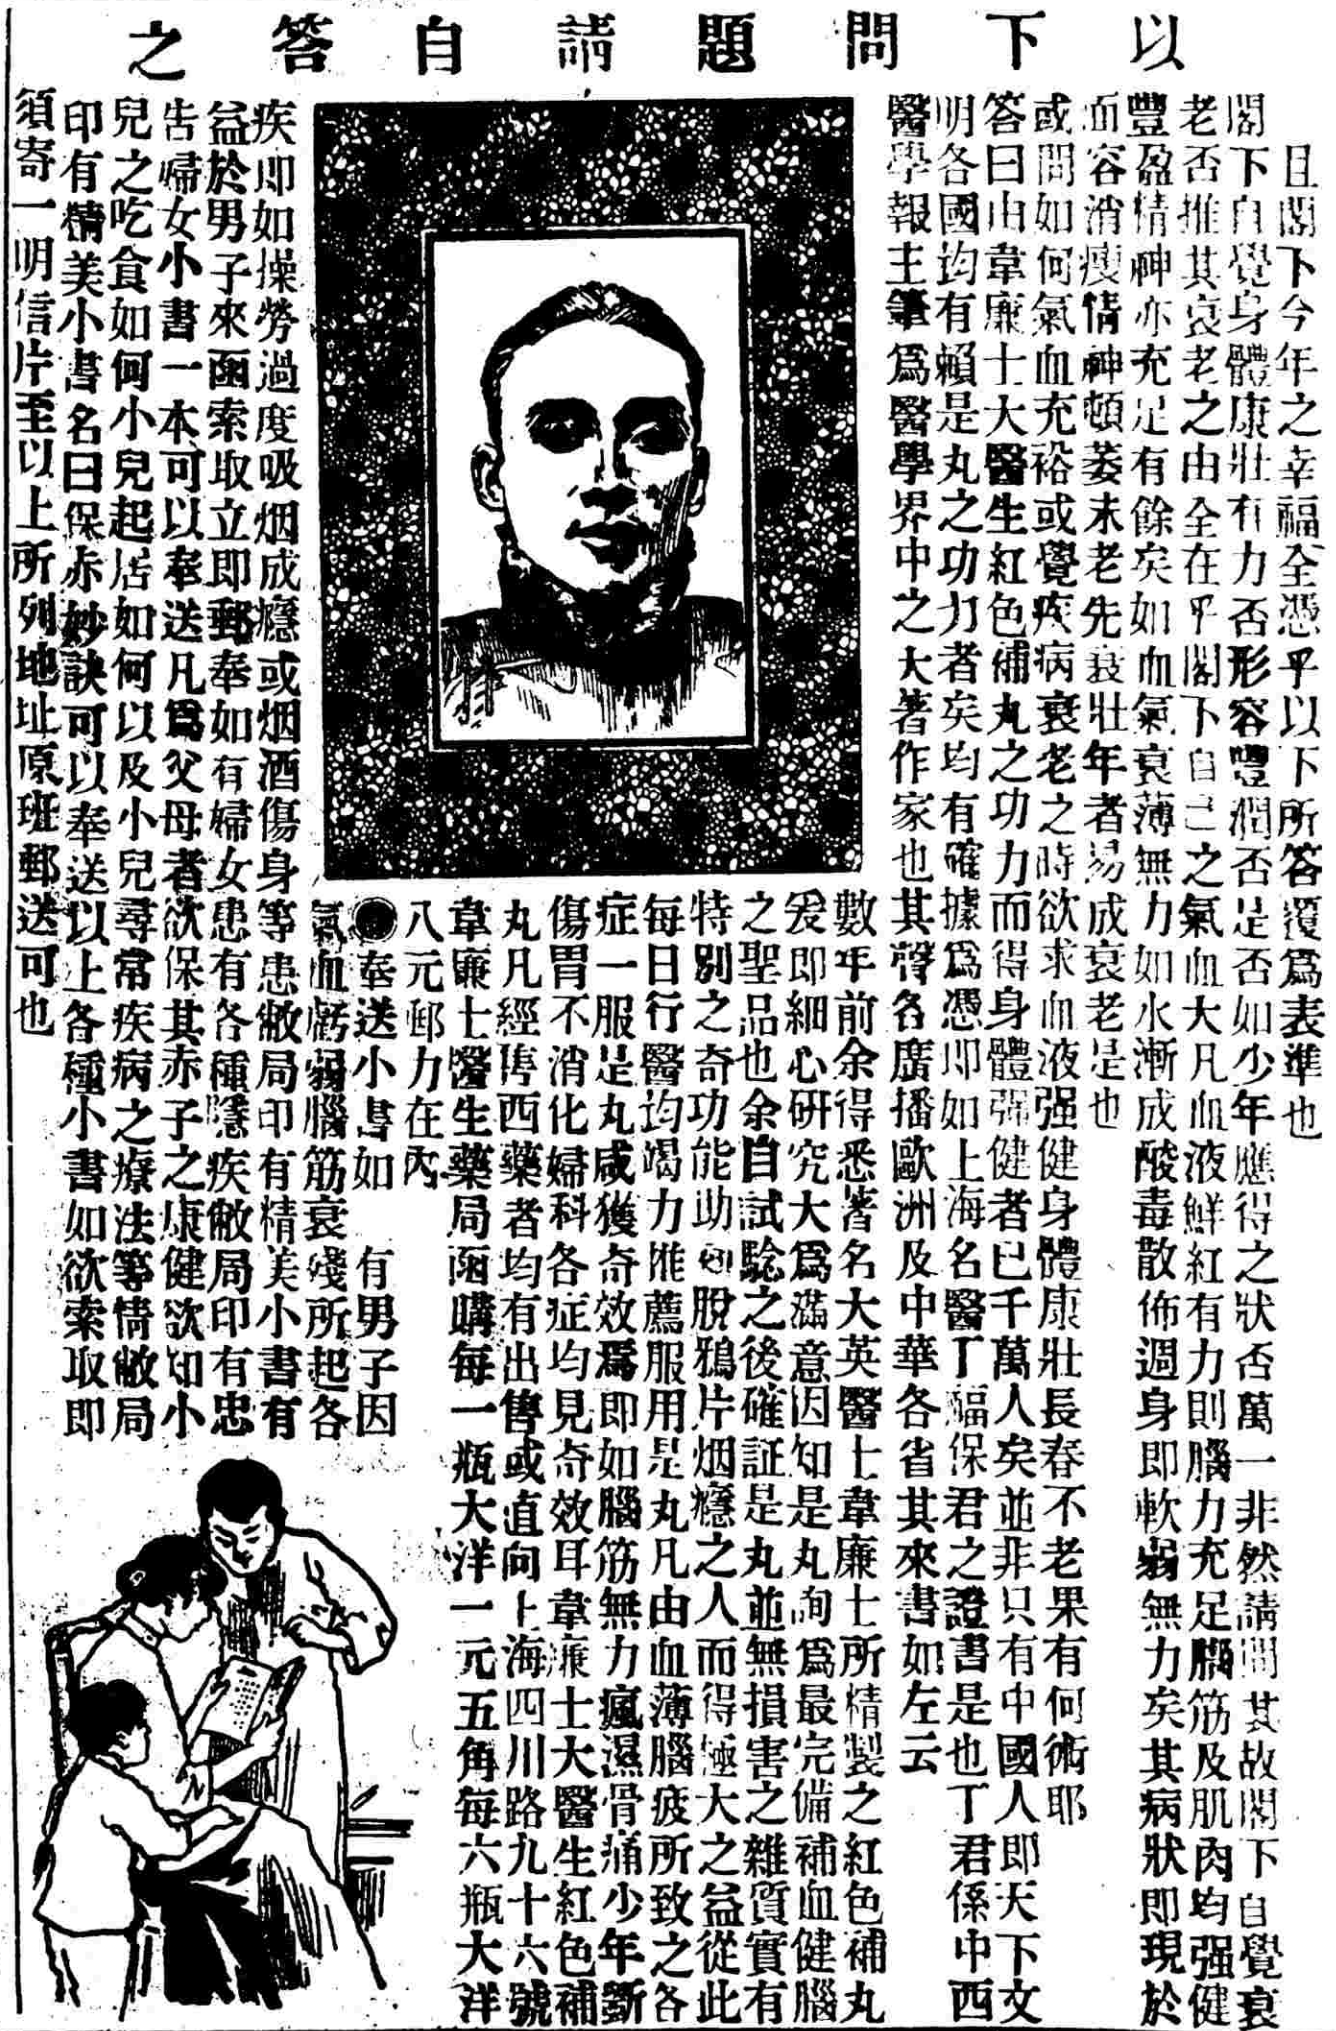 以下問題請自答之
且閣下今年之幸福全憑乎以下所答覆爲表準也
閣下自覺身體康壯有力否形容豐潤否是否如少年應得之狀否萬一非然請問其故閣下自覺衰
老否推其衰老之由全在乎閣下自己之氣血大凡血液鮮紅有力則腦力充足腦筋及肌肉均强健
豐盈精神亦充足有餘矣如血氣衰薄無力如水漸成酸毒散佈週身即軟弱無力矣其病狀即現於
面容消瘦情神頓萎未老先衰壯年者易成衰老是也
或問如何氣血充裕或覺疾病衰老之時欲求血液强健身體康壯長春不老果有何術耶
答曰由韋廉士大醫生紅色補丸之功力而得身體强健者已千萬人矣並非只有中國人即天下文
明各國均有賴是丸之功力者矣均有確據爲憑即如上海名醫丁福保君之證書是也丁君係中西
醫學報主筆爲醫學界中之大著作家也其聲名廣播歐洲及中華各省其來書如左云
數年前余得悉著名大英醫士韋廉士所精製之紅色補丸
爰即細心研究大爲滿意因知是丸洵爲最完備補血健腦
之聖品也余自試驗之後確証是丸並無損害之雜質實有
特別之奇功能助 脫鴉片烟癮之人而得極大之益從此
每日行醫均竭力推薦服用是丸凡由血薄腦疲所致之各
症一服是丸咸獲奇效爲即如腦筋無力瘋濕骨痛少年斵
傷胃不消化婦科各症均見奇效耳韋廉士大醫生紅色補
丸凡經售西藥者均有出售或直向上海四川路九十六號
韋廉士醫生藥局函購每一瓶大洋一元五角每六瓶大洋
八元郵力在內
奉送小書如 有男子因
氣血虧弱腦筋衰殘所起各
疾即如操勞過度吸烟成癮或烟酒傷身等患敝局印有精美小書有
益於男子來函索取立即郵奉如有婦女患有各種隱疾敝局印有忠
告婦女小書一本可以奉送凡爲父母者欲保其赤子之康健欲知小
兒之吃食如何小兒起居如何以及小兒尋常疾病之療法等情敝局
印有精美小書名曰保赤妙訣可以奉送以上各種小書如欲索取即
須寄一明信片至以上所列地址原班郵送可也